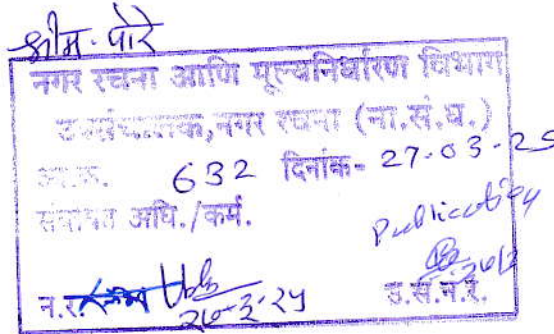 श्रीम. पोरे
नगर रचना आणि मूल्यनिर्धारण विभाग
उपसंचालक,नगर रचना (ना.सं.घ.)
आ.क्र. 632 दिनांक- 27-03-25
संबंधित अधि./कर्म.
Publication
न.र.
उ.सं.न.र.